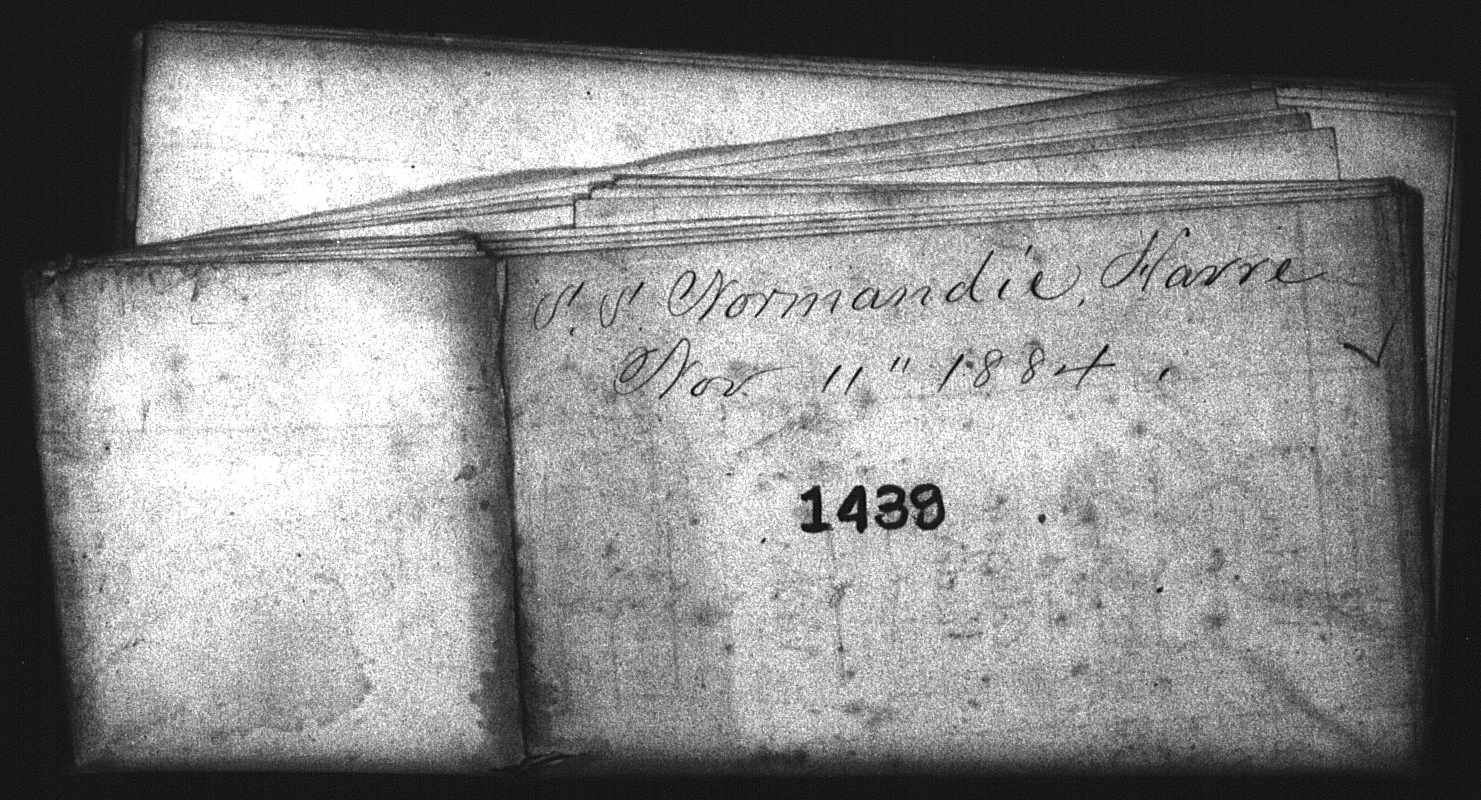 S. S. Normandie, Havre
Nov 11" 1884.
1439